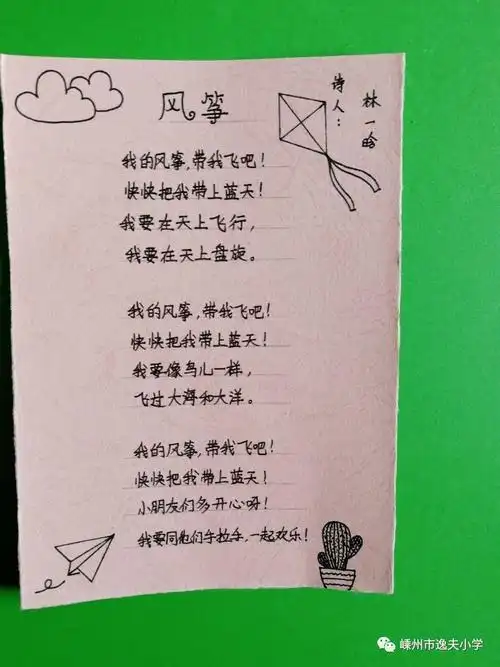 风筝
诗人：
林一晗
我的风筝,带我飞吧！
快快把我带上蓝天！
我要在天上飞行，
我要在天上盘旋。
我的风筝,带我飞吧！
快快把我带上蓝天！
我要像鸟儿一样，
飞过大海和大洋。
我的风筝,带我飞吧！
快快把我带上蓝天！
小朋友们多开心呀！
我要同他们手拉手,一起欢乐！
嵊州市逸夫小学